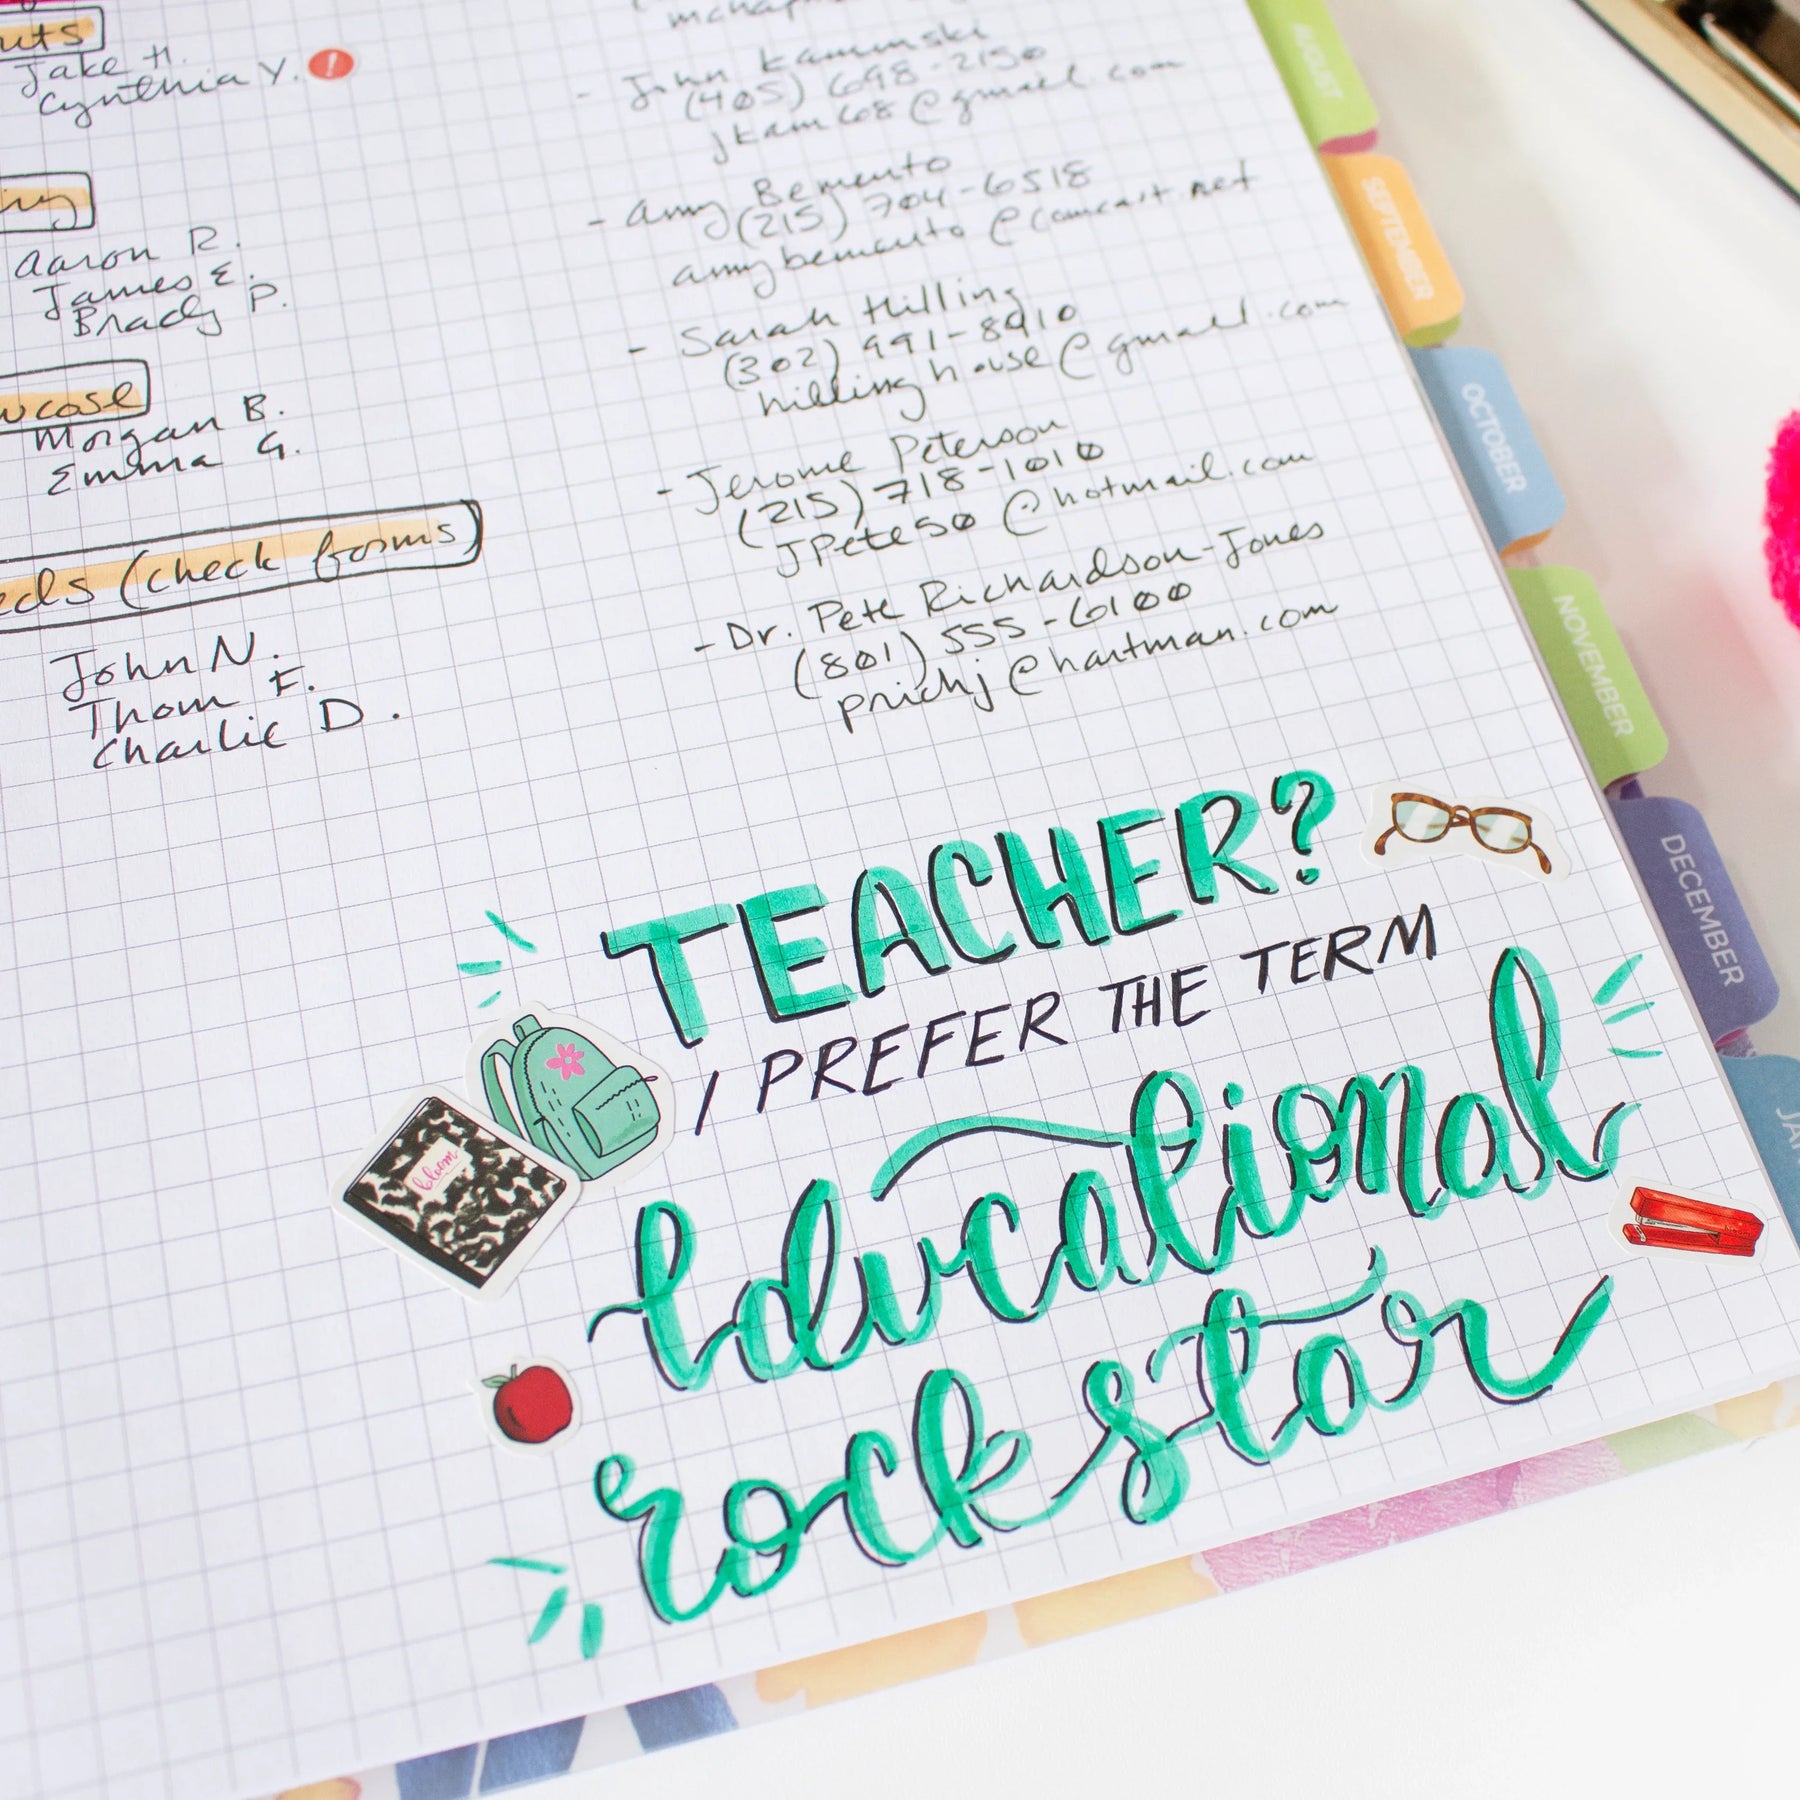 Jake H.
Cynthia Y. !
Aaron R.
James E.
Brady P.
Morgan B.
Emma G.
(check forms)
John N.
Thom F.
Charlie D.
- John Kaminski
(405) 698-2150
jkam68@gmail.com
- Amy Bemento
(215) 704-6518
amybemento@comcast.net
- Sarah Hilling
(302) 991-8910
hillinghouse@gmail.com
- Jerome Peterson
(215) 718-1010
JPete50@hotmail.com
- Dr. Pete Richardson-Jones
(801) 555-6100
prichj@hartman.com
TEACHER?
I PREFER THE TERM
Educational
rock star
bloom
AUGUST
SEPTEMBER
OCTOBER
NOVEMBER
DECEMBER